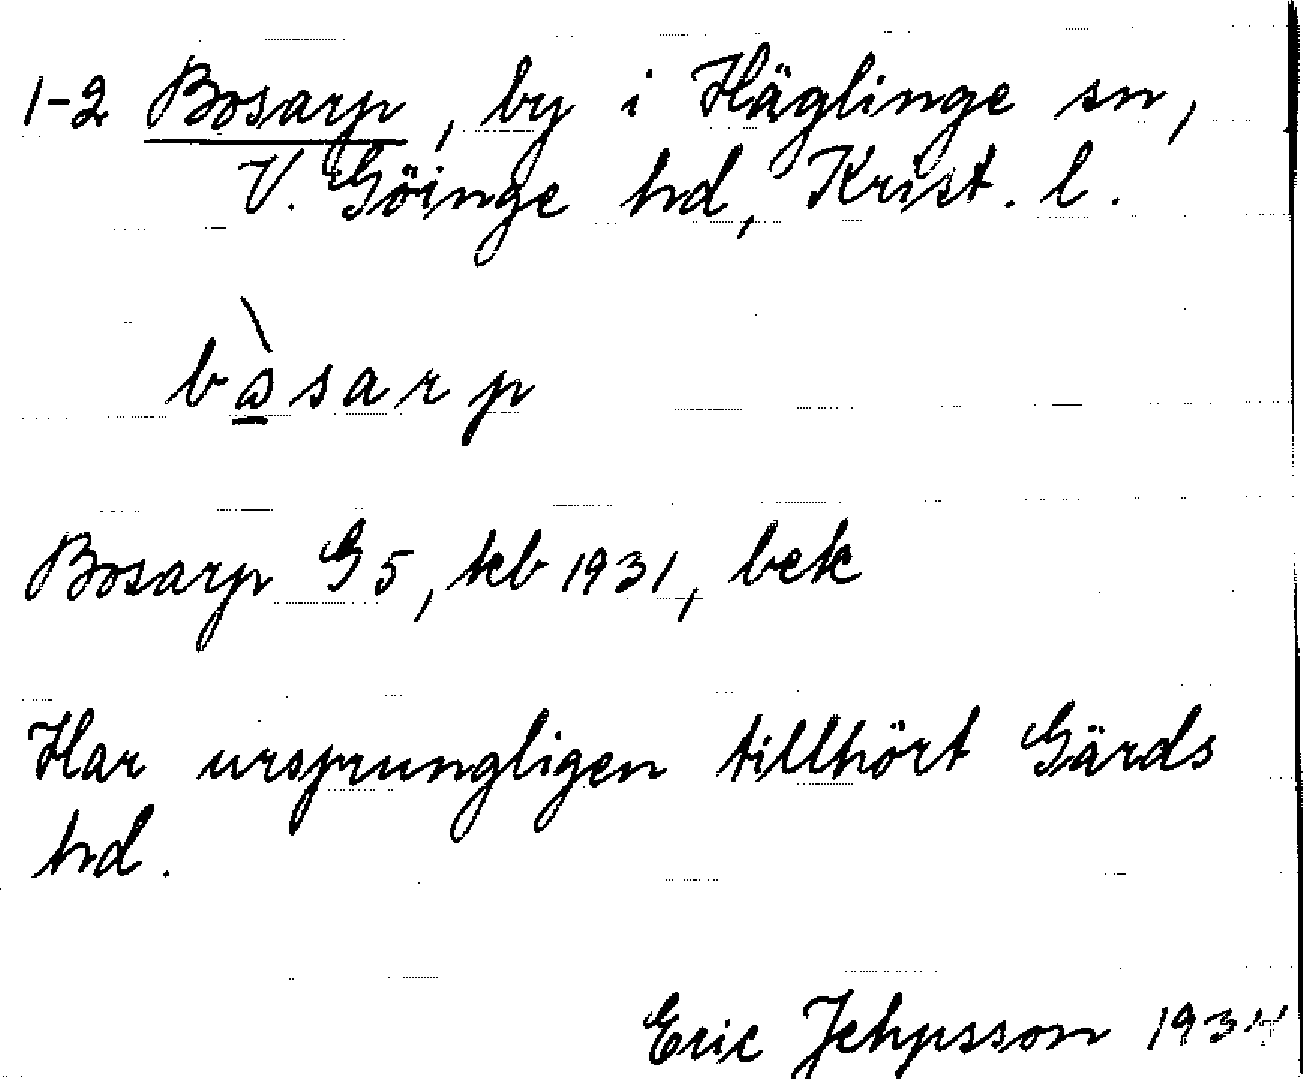 1-2 Bosarp, by i Häglinge sn,
V. Göinge hd, Krist. l.
bòsarp
Bosarp G5, kb 1931, bek
Har ursprungligen tillhört Gärds
hd.
Eric Jehpsson 1934